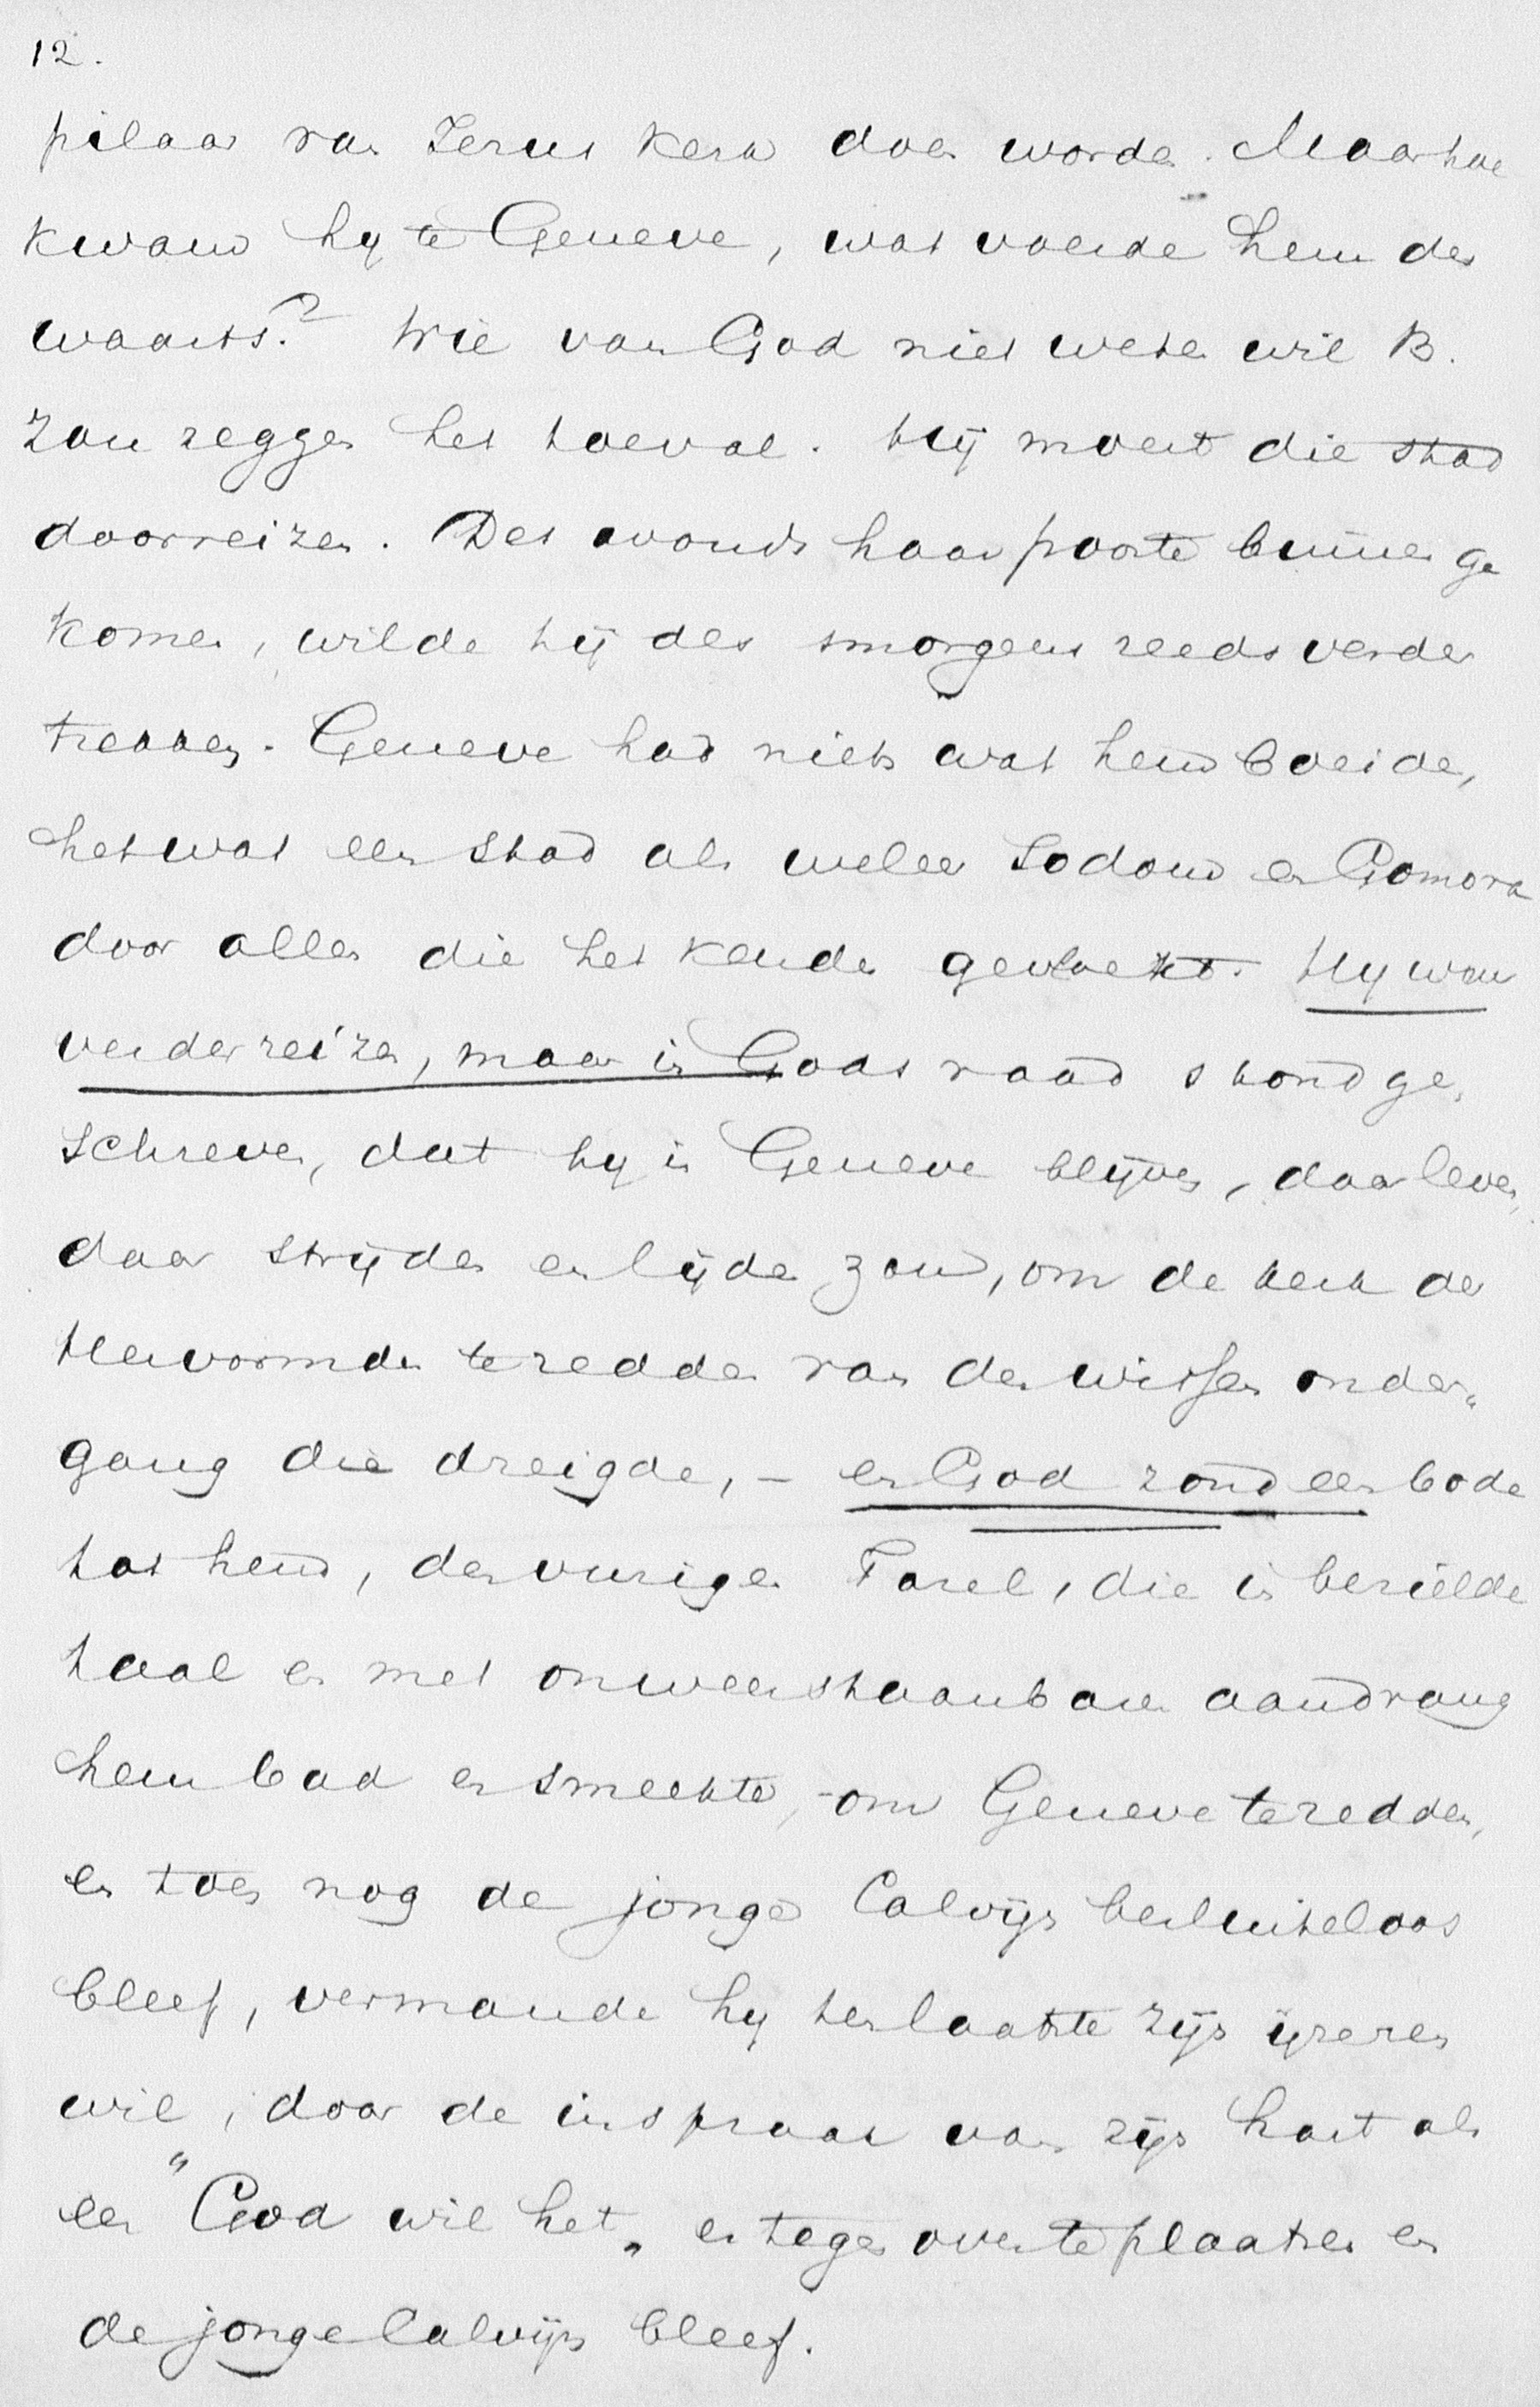 12.
pilaar van Jezus Kerk doen worden. Maar hoe
kwam hy te Geneve, wat voerde hem der
waarts? Wie van God niet weten wil B.
zou zeggen het toeval. Hij moest die stad
doorreizen. Des avonds haar poorte binnen ge
komen, wilde hij des smorgens reeds verder
trekken. Geneve had niets wat hem boeide,
het was een stad als welker Sodom en Gomora
door allen die het kenden gevloekt. Hy wou
verder reizen, maar in Gods raad stond ge,
schreven, dat hy in Geneve blijven, daar leven,
daar strijden en lijden zou, om de kerk der
Hervormden te redden van den wissen onder„
gang die dreigde, - en God zond een bode
tot hem, den vurigen Farel, die in bezielde
taal en met onweerstaanbaren aandrang
hem bad en smeekte, - om Geneve te redden,
en toen nog de jonge Calvijn besluiteloos
bleef, vermande hy ten laatste zijn ijzeren
wil, door de inspraak van zijn hart als
een "God wil het„ er tegen over te plaatsen en
de jonge Calvijn bleef.